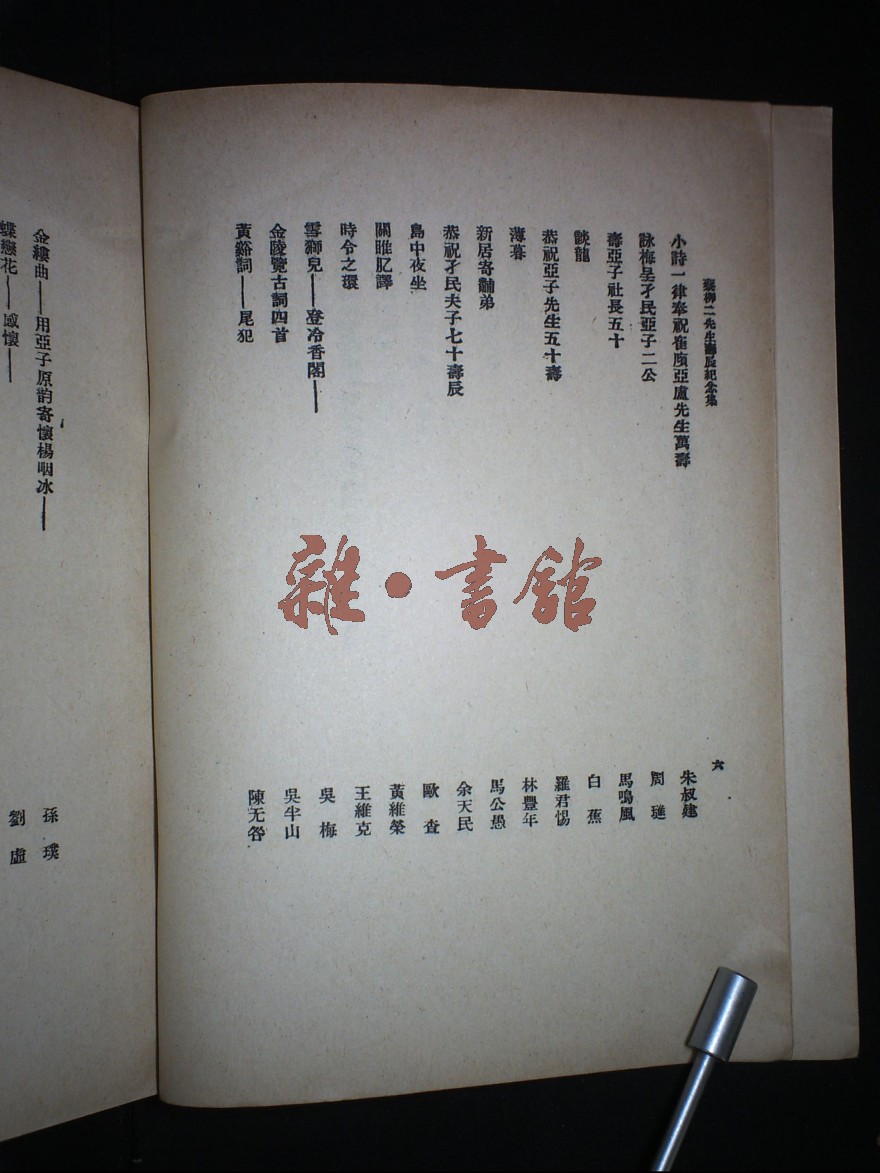 蔡柳二先生壽辰紀念集
六
小詩一律奉祝崔廎亞盧先生萬壽
朱叔建
詠梅呈孑民亞子二公
周璉
壽亞子社長五十
馬鳴風
談龍
白蕉
恭祝亞子先生五十壽
羅君惕
薄暮
林豐年
新居寄黼弟
馬公愚
恭祝孑民夫子七十壽辰
余天民
島中夜坐
歐查
關雎肊譯
黃維榮
時令之環
王維克
雪獅兒——登冷香閣——
吳梅
金陵覽古詞四首
吳半山
黃谿詞——尾犯
陳无咎
金縷曲——用亞子原韵寄懷楊咽冰——
孫璞
蝶戀花——感懷——
劉虛
雜·書館